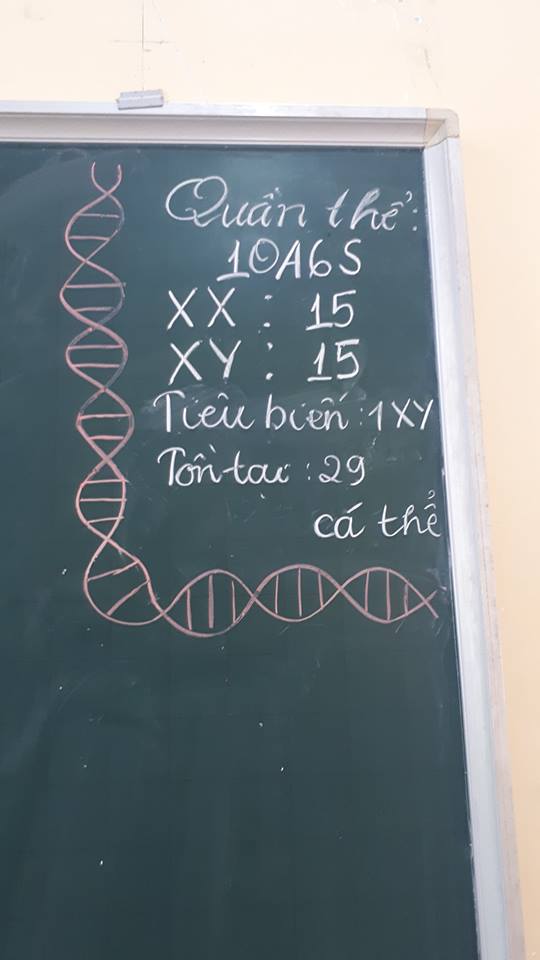 Quần thể:
10A6S
XX : 15
XY : 15
Tiêu biến : 1XY
Tồn tại : 29
cá thể